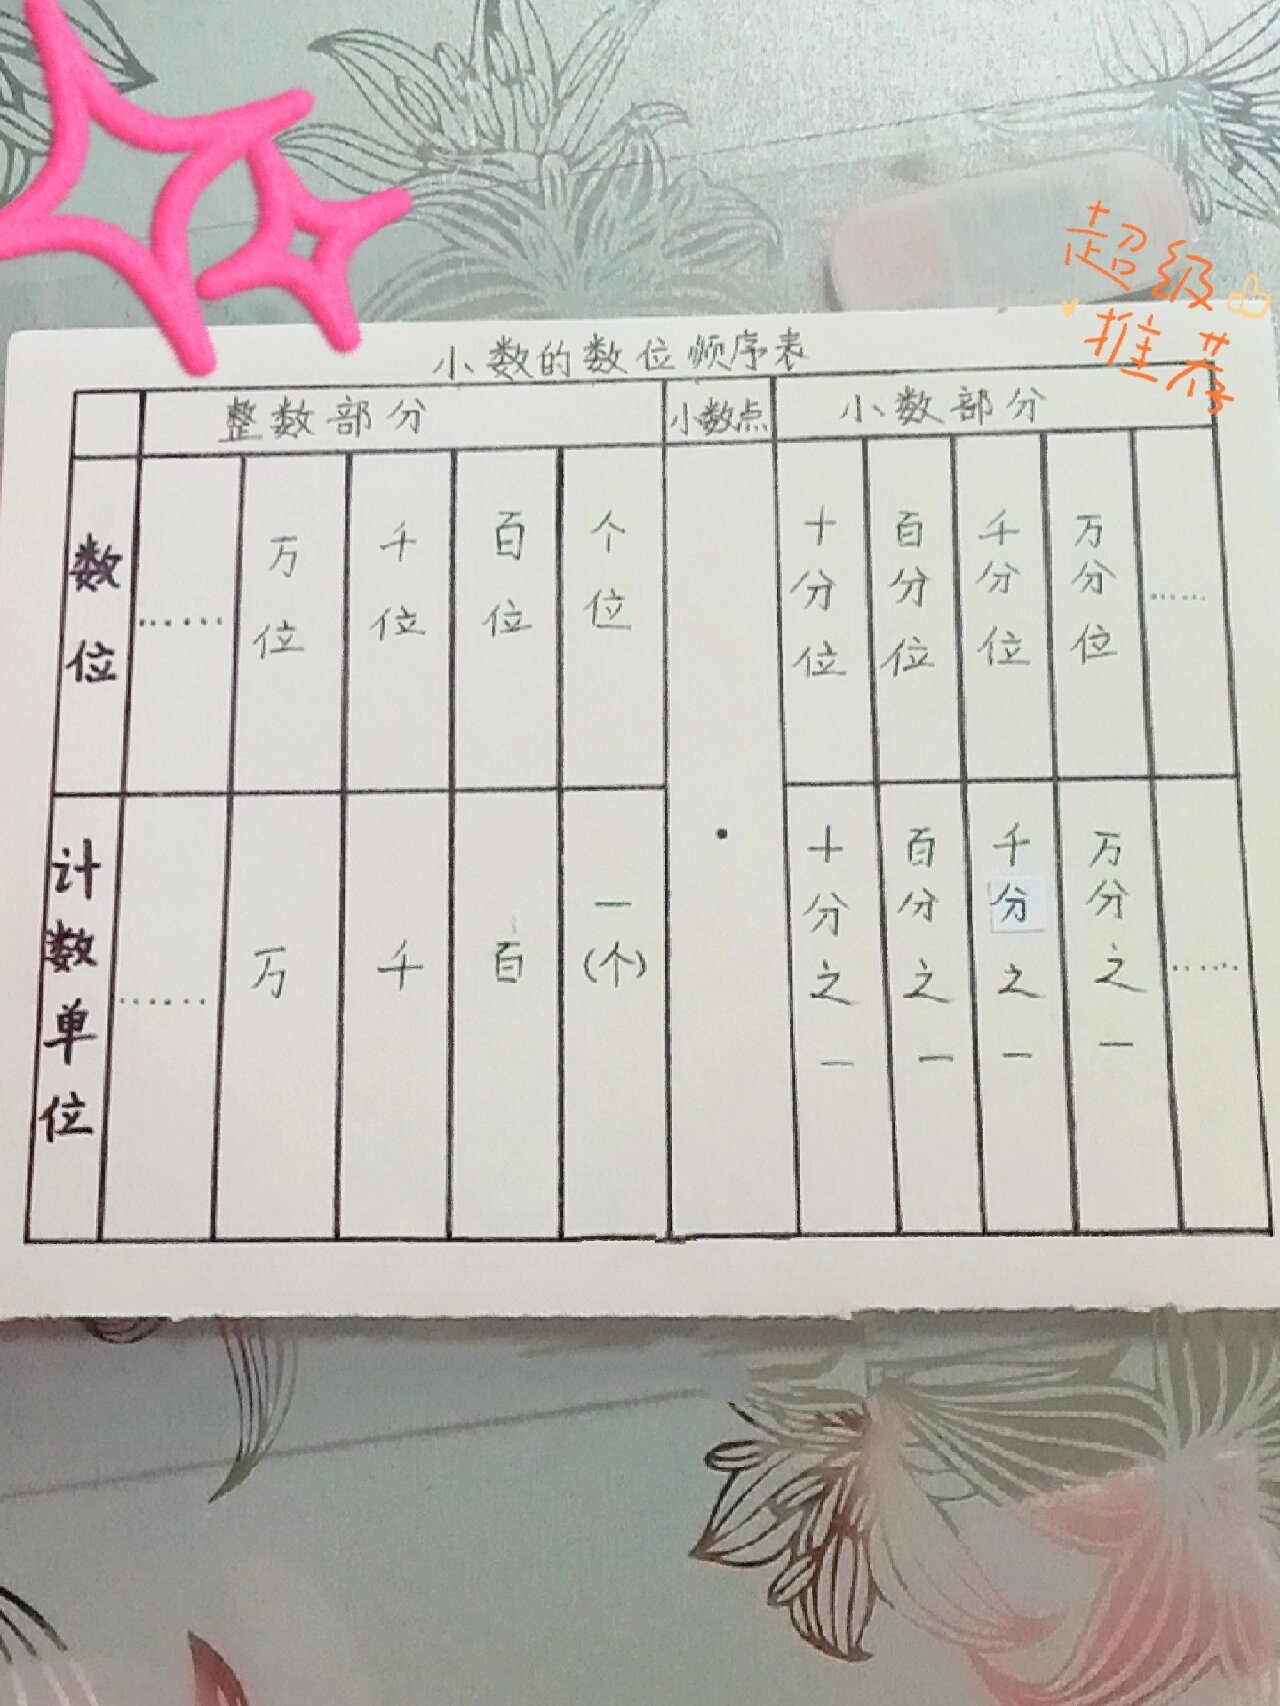 超级
推荐
小数的数位顺序表
整数部分 小数点 小数部分
数位 …… 万位 千位 百位 个位 十分位 百分位 千分位 万分位 ……
计数单位 …… 万 千 百 一(个) · 十分之一 百分之一 千分之一 万分之一 ……